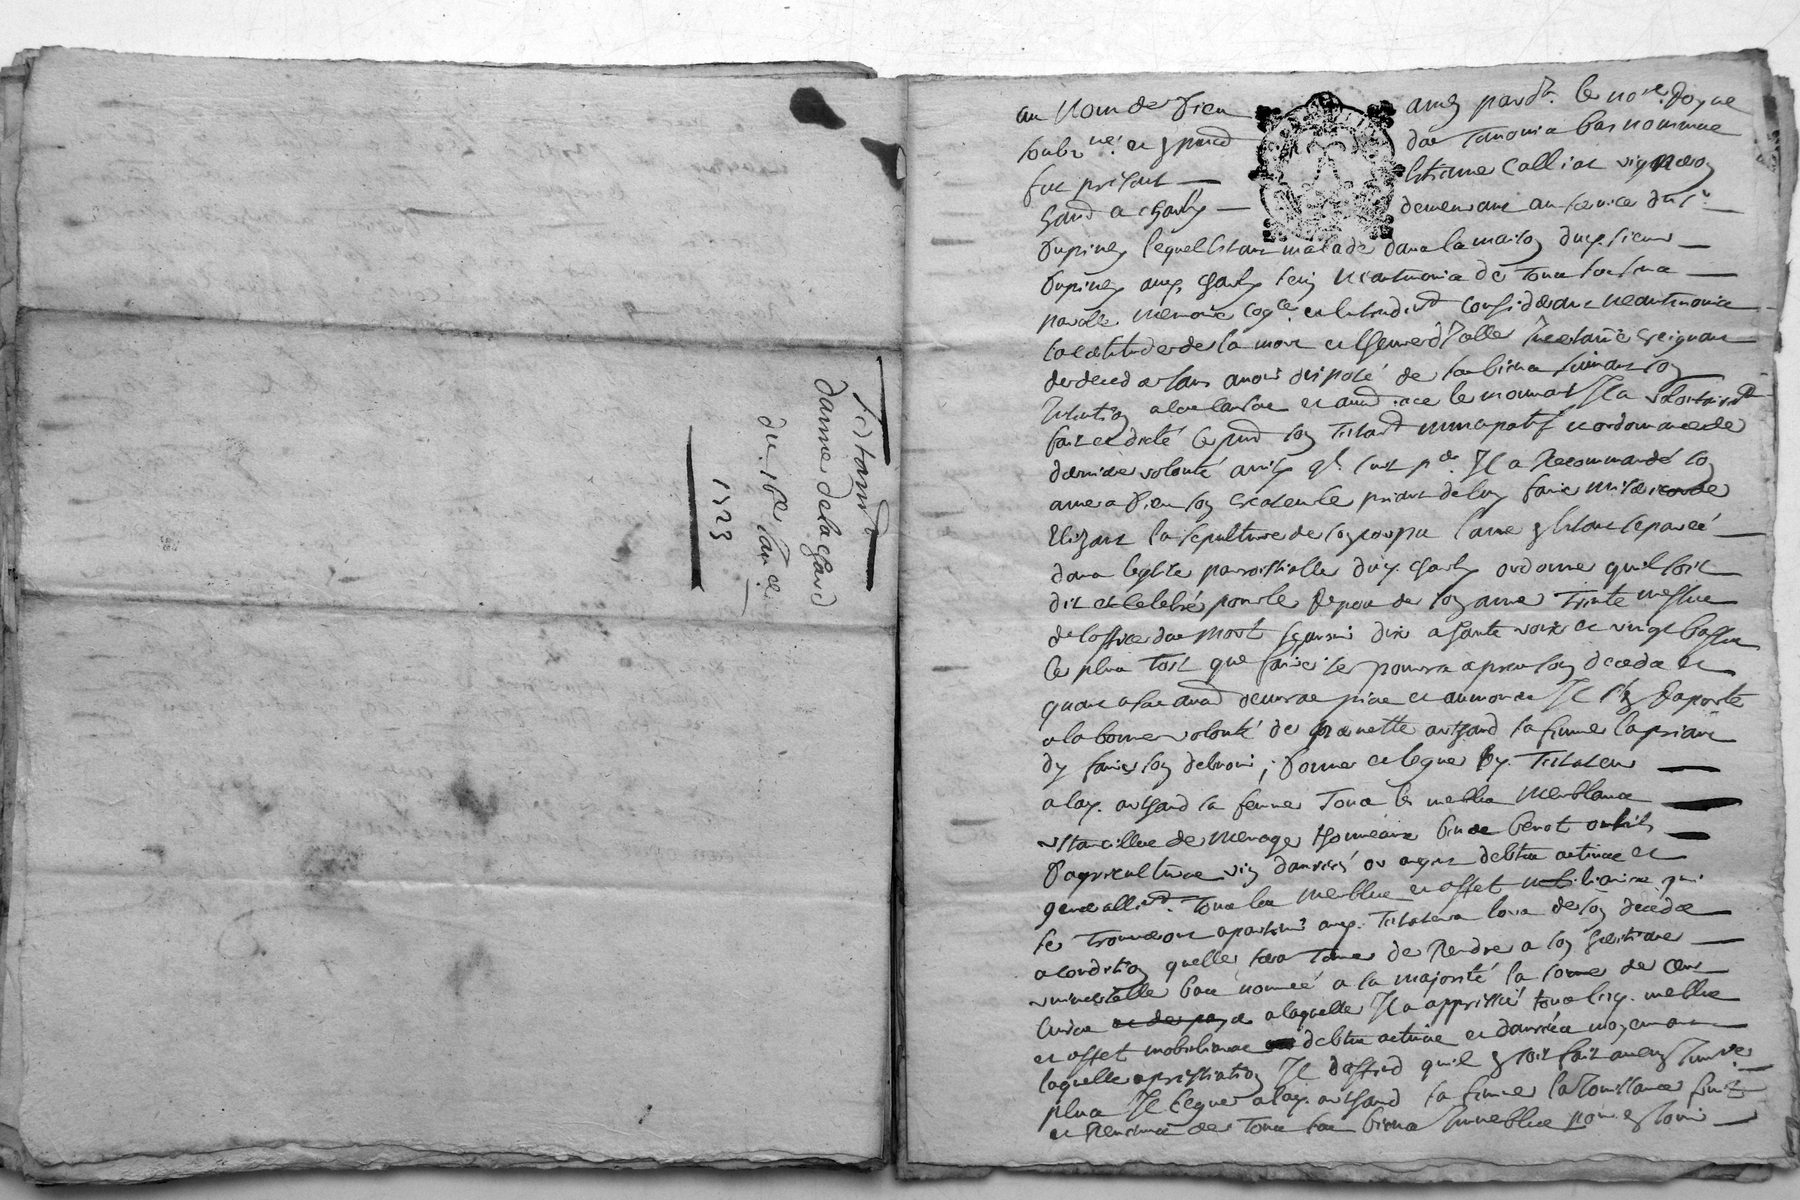 testamt
dame delachard
du 16e Janer
1723
au Nom de Dieu amen pardt. le nore. Royae
soubzné et presnd des temoins bas nommes
fut present Estienne Calliat vigneron
habnt a charly demeurant au service du sr.
Dupinet lequel estant malade dans la maison dud. sieur
Dupinet aud. charly sein neantmoins de tous ses sens
parolle memoire cogce. et entendemt considerant neantmoins
la certitude de la mort et lheure d'Icelle Incertaine creignant
de deceder sans avoir disposé de ses biens suivant son
Intention a ces causes et aud. nre le nommé Il a volontairemt
fait et dicté le pnt son testamt nuncupatif et ordonnance de
derniere volonté ainsy quil suit pr. Il a Recommandé son
ame a Dieu son createur le priant deluy faire misericorde
Elizant la sepulture de son corps lame en estant separée
dans leglise parroissialle dud. charly ordonne quil soit
dit et celebré pour le Repos de son ame trente messes
de loffice des morts sçavoir dix a haute voix et vingt basses
le plus tost que faire se pourra apres son deceds et
quant a ses autres œuvres pies et aumones Il s'en Raporte
a la bonne volonté de pernette arthaud sa femme la priant
d'y faire son debvoir; Donne et legue led. Testateur
a lad. arthaud sa femme tous les meubles meublans
ustancilles de menage tonneaux bennes benot outils
D'agriculture vin danrées or argent debtes actives et
generallemt. tous les meubles et effet mobiliaires qui
se trouveront apartenir aud. Testateur lors de son deceds
a condition quelle sera tenue de Rendre a son heritiere
universelle bas nomeé a sa majorité la somme de cent
livres a laquelle Il a appritié tous lesd. meubles
et effet mobiliaires debtes actives et danrées moyennant
laquelle apretiation Il deffend quil en soit fait aucun Invre
plus Il legue a lad. arthaud sa femme la Jouissance fruits
et Revenus de tous ses biens Immeubles pour en Jouir